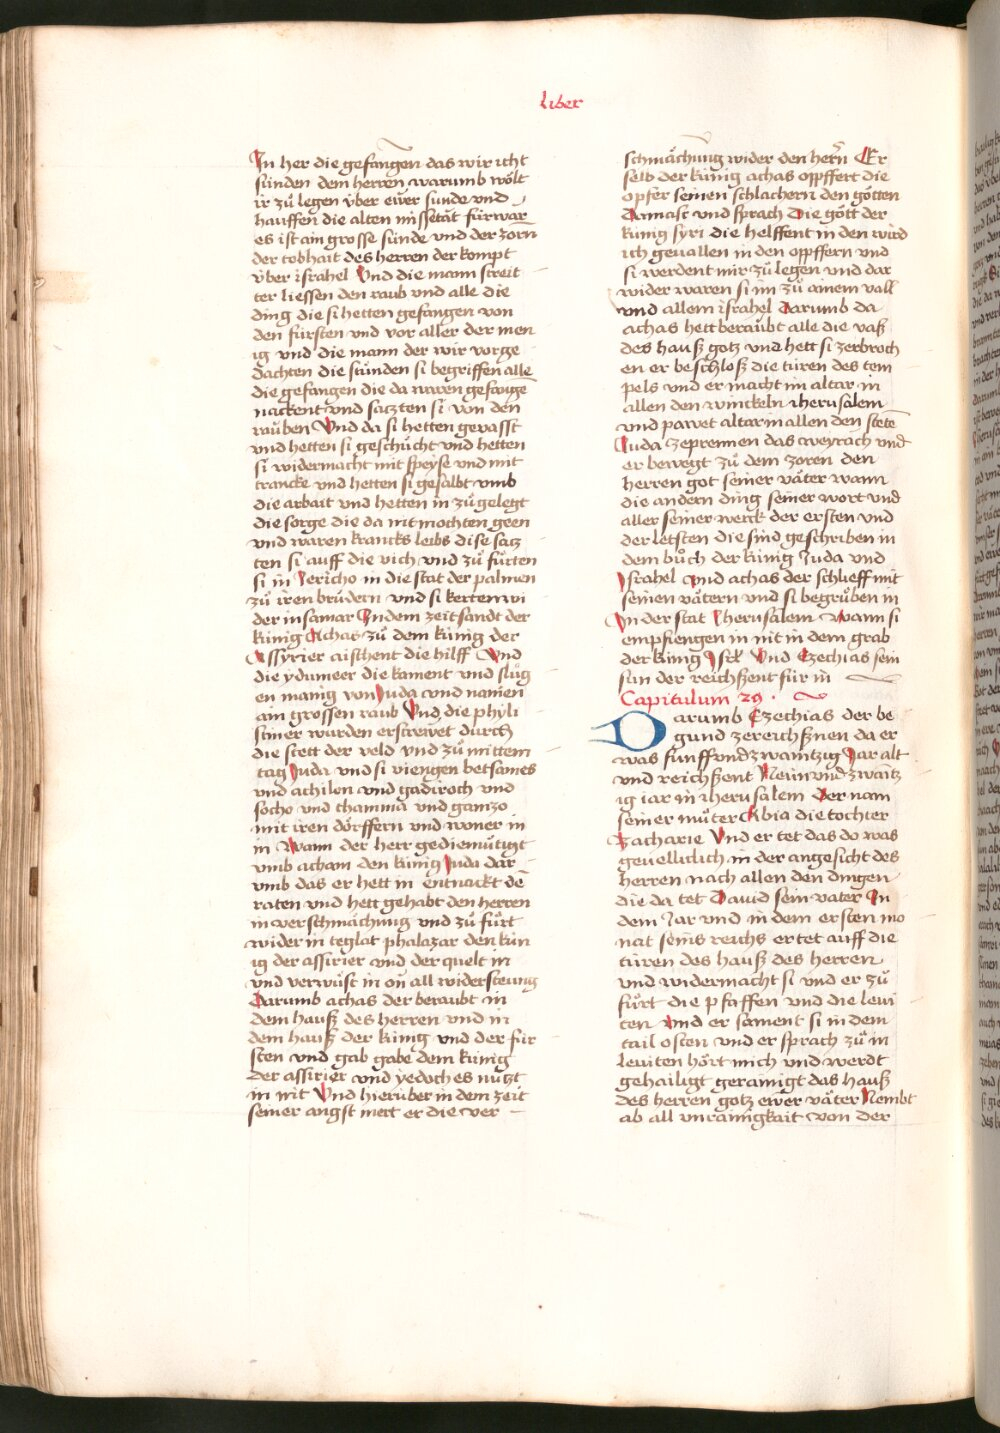 Liber
In her die gefangen das wir icht
sünden dem herren warumb wölt
ir zů legen vber ewer sunde vnd
hauffen die alten missetät fürwar
es ist ain grosse sünde vnd der zorn
der tobhait des herren der kompt
vber israhel Vnd die mann streit
ter liessen den raub vnd alle die
ding die si hetten gefangen von
den fürsten vnd vor aller der men
ig vnd die mann der wir vorge
dachten die stůnden si begriffen alle
die gefangen die da waren gefange
nackent vnd saczten si von den
rauben Vnd da si hetten gevasst
vnd hetten si geschůcht vnd hetten
si widermacht mit speyse vnd mit
trancke vnd hetten si gesalbt vmb
die arbait vnd hetten in zů gelegt
die sorge die da nit mochten geen
vnd waren krancks leibs dise sacz
ten si auff die vich vnd zů fůrten
si in Jericho in die stat der palmen
zů iren brüdern vnd si kerten wi
der in samar Indem zeit sandt der
künig Achas zů dem künig der
Assyrier aischent die hilff Vnd
die ydumeer die kament vnd slůg
en manig von Juda vnd namen
ain grossen raub Vnd die phyli
stiner wurden erstrewet durch
die stett der veld vnd zů mittem
tag Juda vnd si viengen betsames
vnd achilon vnd gadiroch vnd
socho vnd thamma vnd gamzo
mit iren dörffern vnd woner in
in Wann der herr gediemütigt
vmb acham den künig Juda dar
vmb das er hett in entnackt dē
raten vnd hett gehabt den herren
in verschmächung vnd zů fůrt
wider in teglat phalazar den kün
ig der assirier vnd der quelt in
vnd verwüst in on all widersteung
Darumb achas der beraubt in
dem hauß des herren vnd in
dem hauß der künig vnd der für
sten vnd gab gabe dem künig
der assirier vnd yedoch es nuczt
in nit Vnd hierüber in dem zeit
seiner angst mert er die ver
schmächung wider den herrn Er
selb der künig achas oppffert die
opfer seinen schlachern den götten
Damasc vnd sprach Die gött der
künig syri die helffent in den wird
ich geuallen in den oppffern vnd
si werdent mir zů legen vnd dar
wider waren si im zů ainem vall
vnd allem israhel Darumb da
achas hett beraubt alle die vaß
des hauß gotz vnd hett si zerbroch
en er beschloß die türen des tem
pels vnd er macht im altar in
allen den winckeln iherusalem
vnd pawet altar in allen den stetē
Juda zeprennen das weyrach vnd
er bewegt zů dem zoren den
herren got seiner väter wann
die andern ding seiner wort vnd
aller seiner werck der ersten vnd
der letsten die sind geschriben in
dem bůch der künig Juda vnd
Israhel Vnd achas der schlieff mit
seinen vätern vnd si begrůben in
In der stat Jherusalem Wann si
empfiengen in nit in dem grab
der künig Isrl Vnd Ezechias sein
sun der reichßent für in
Capitulum 29.
Darumb Ezechias der be
gund zereichßnen da er
was funffvndzwaintzig Jar alt
vnd reichßent Neun vnd zwaitz
ig iar in iherusalem Der nam
seiner můter Abia die tochter
Zacharie Vnd er tet das do was
geuelliclich in der angesicht des
herren nach allen den dingen
die da tet Dauid sein vater In
dem Jar vnd in dem ersten mo
nat seins reichs er tet auff die
türen des hauß des herren
vnd widermacht si vnd er zů
fůrt die pfaffen vnd die leui
ten Vnd er sament si in dem
tail osten vnd er sprach zů in
leuiten hört mich vnd werdt
gehailigt gerainigt das hauß
des herren gotz ewer väter Nembt
ab all vnrainigkait von der